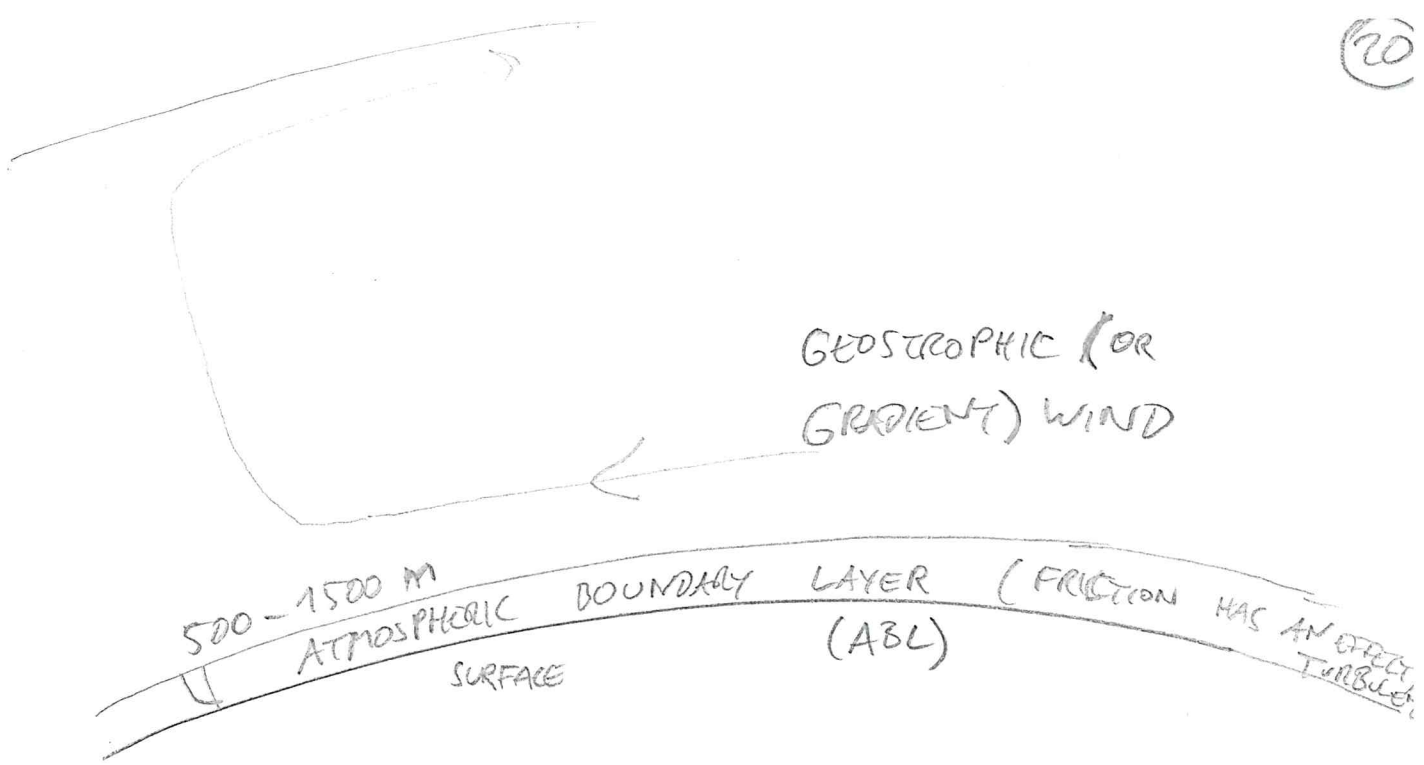 20
GEOSTROPHIC (OR
GRADIENT) WIND
500-1500 M
ATMOSPHERIC BOUNDARY LAYER (FRICTION HAS AN EFFECT,
TURBULEN
(ABL)
SURFACE